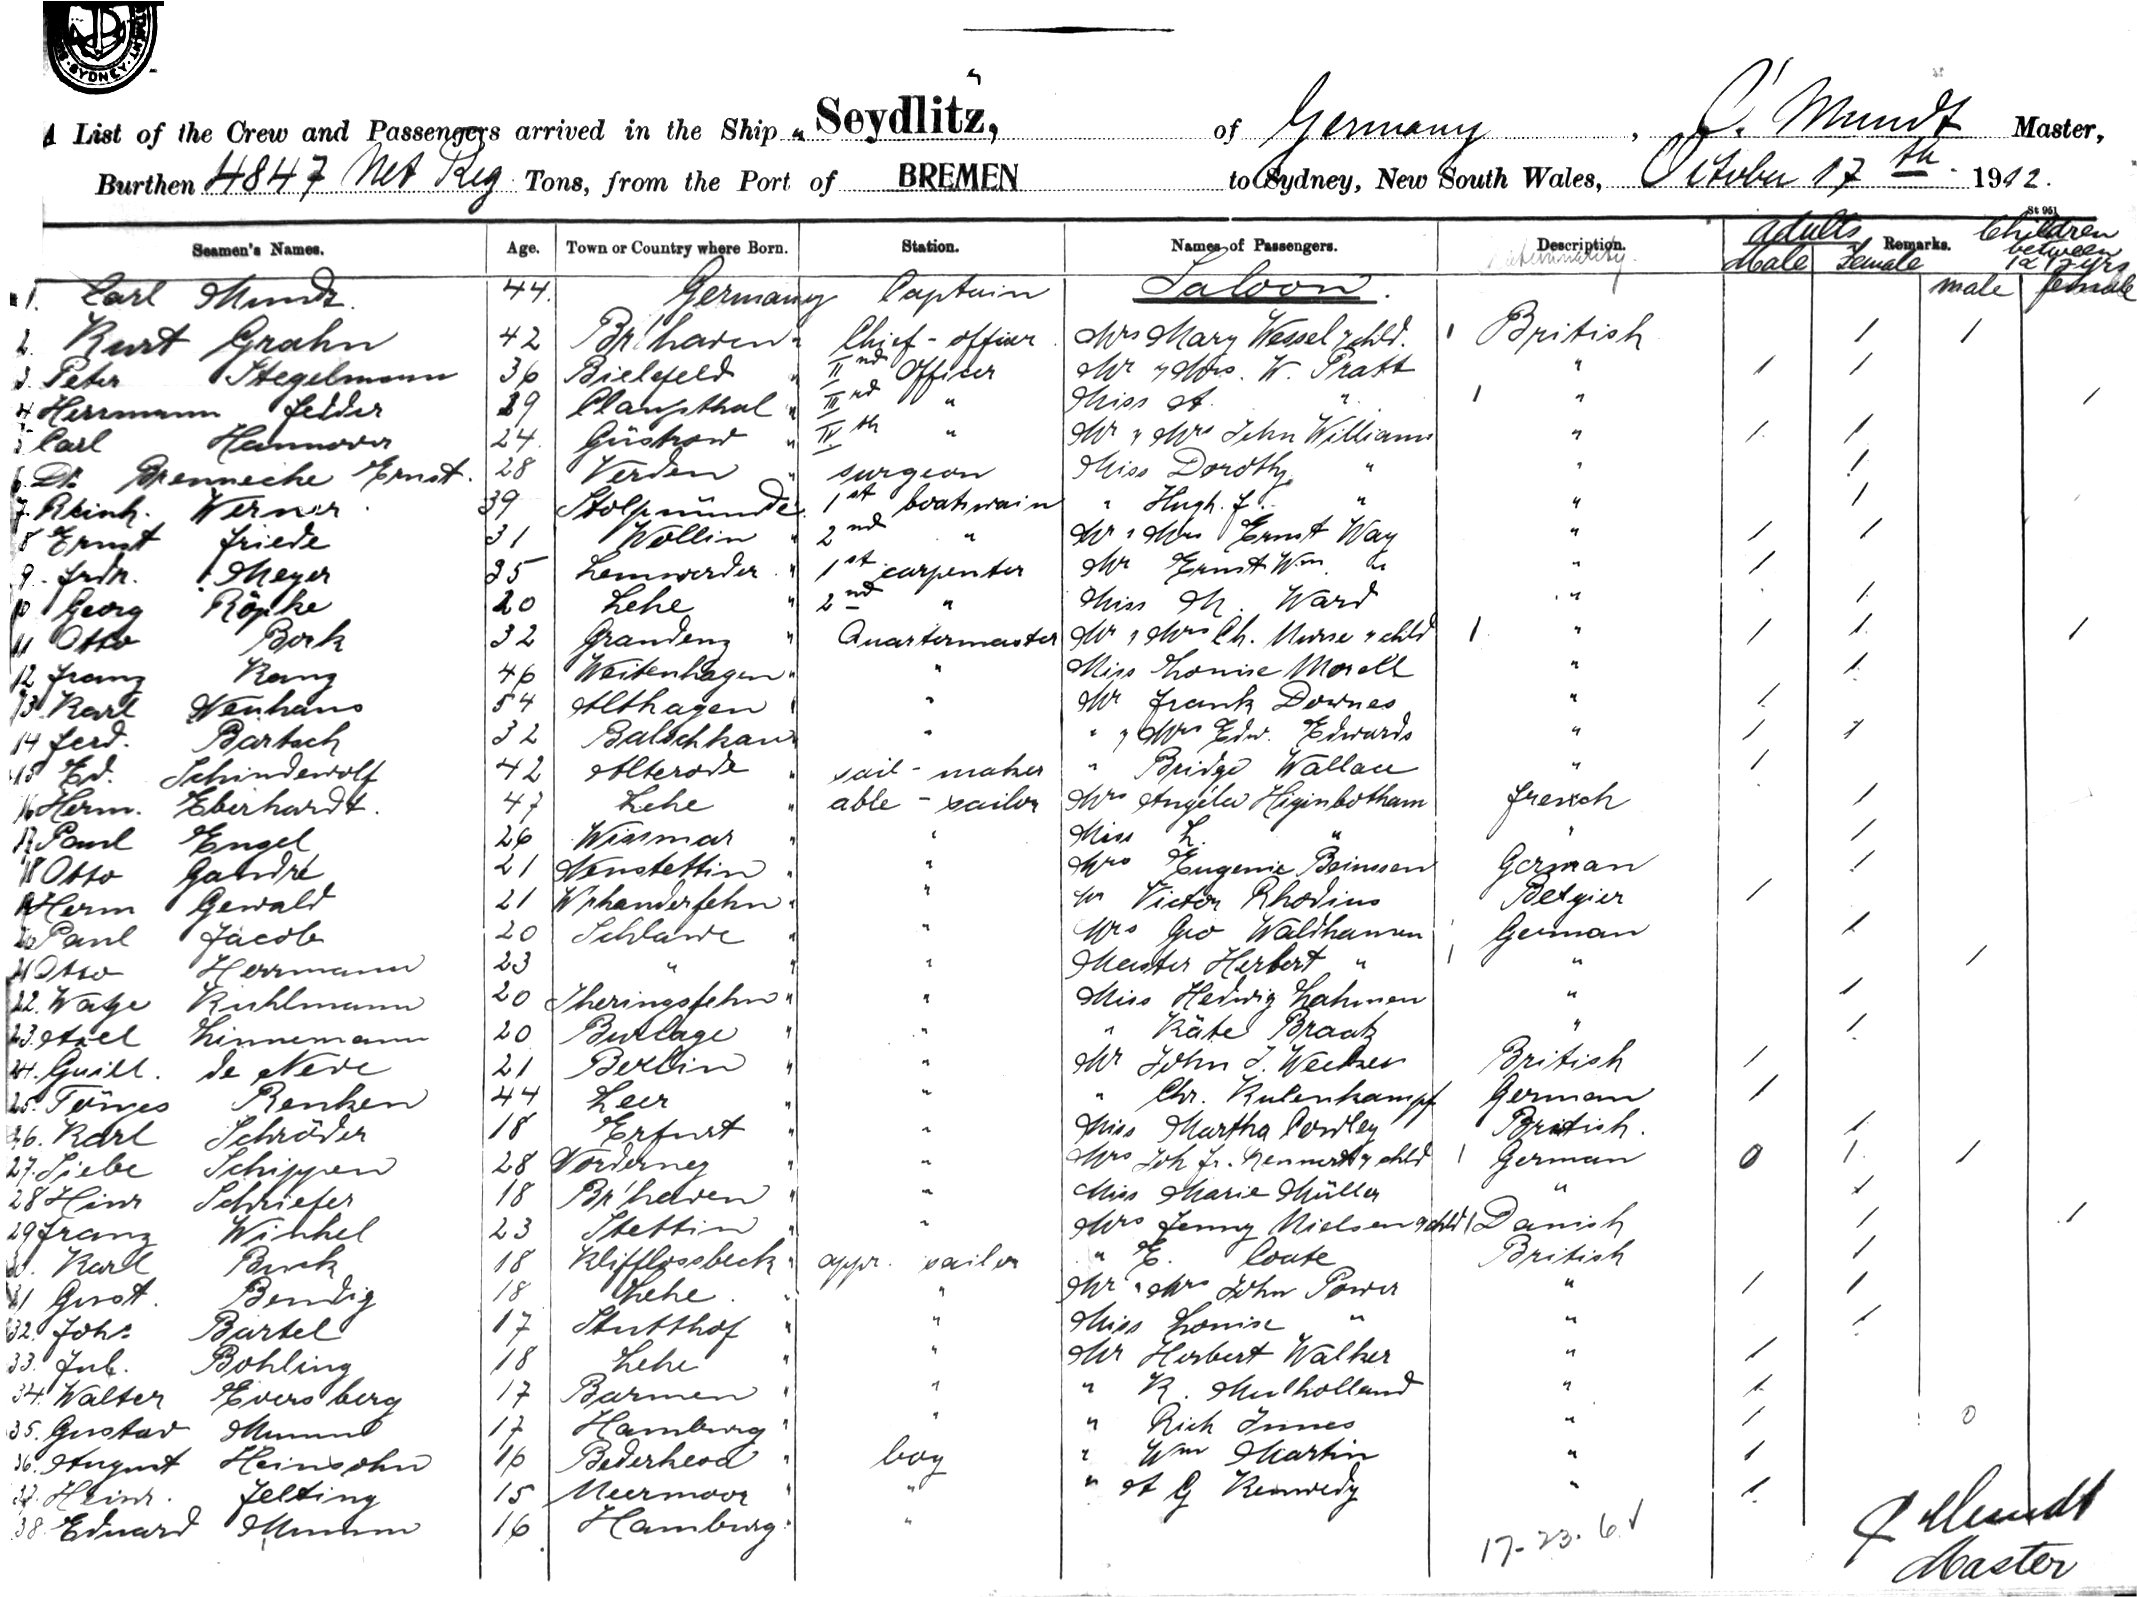 SYDNEY
A List of the Crew and Passengers arrived in the Ship "Seydlitz, of Germany, C. Mundt Master,
Burthen 4847 Net Reg Tons, from the Port of BREMEN to Sydney, New South Wales, October 17th 1912.
St 951
Seamen's Names. Age. Town or Country where Born. Station. Names of Passengers. Description. Adults Male Female Remarks. Children between 1 & 12 yrs male female
1. Carl Mundt 44. Germany Captain Saloon.
2. Kurt Grahn 42 Br'haven " Chief-officer Mrs Mary Wessel & chld. 1 British 1 1
3. Peter Stegelmann 36 Bielefeld " IInd Officer Mr & Mrs. W. Pratt " 1 1
4 Herrmann Felder 29 Clausthal " IIIrd " Miss A. " 1 " 1
5 Carl Hannover 24. Güstrow " IVth " Mr & Mrs John Williams " 1 1
6. Dr. Brennecke Ernst. 28 Verden " surgeon Miss Dorothy " " 1
7. Reinh. Werner 39 Stolpmünde " 1st boatswain " Hugh. F. " " 1
8 Ernst Friede 31 Wollin " 2nd " Mr & Mrs Ernst Way " 1 1
9. Frdr. Meyer 35 Lemwerder " 1st carpenter Mr Ernst Wm. " " 1
10 Georg Röpke 20 Lehe " 2nd " Miss M. Ward " 1
11 Otto Bork 32 Graudenz " Quartermaster Mr & Mrs Ch. Nurse & chld 1 " 1 1 1
12 Franz Ranz 46 Weitenhagen " " Miss Louise Morell " 1
13 Karl Neuhaus 54 Althagen " " Mr Frank Downes " 1
14 Ferd. Bartsch 32 Balschkau " " " & Mrs Edw. Edwards " 1 1
15 Ed. Schindewolf 42 Alterode " sail-maker " Bridge Wallace " 1
16 Herm. Eberhardt. 47 Lehe " able-sailor Mrs Angéla Higinbotham French 1
17 Paul Engel 26 Wismar " " Miss L. " " 1
18 Otto Gandre 21 Neustettin " " Mrs Eugenie Beinssen German 1
19 Herm Gewald 21 W'rhanderfehn " " Mr Victor Rhodius Belgier 1
20 Paul Jacob 20 Schlawe " " Mrs Geo Waldhausen German 1
21 Otto Herrmann 23 " " " Master Herbert " 1 " 1
22. Kuhlmann 20 Iheringsfehn " " Miss Hedwig Lahmen " 1
23. Axel Linnemann 20 Burlage " " " Käte Braatz " 1
24. Guill. de Neve 21 Berlin " " Mr John J. British 1
25. Tönjes Renken 44 Leer " " " Chr. Kulenkampf German 1
26. Karl Schröder 18 Erfurt " " Miss Martha Cowley British. 1
27. Siebe Schippen 28 Norderney " " Mrs Joh Fr. & chld 1 German 0 1 1
28 Hinr Schriefer 18 Br'haven " " Miss Marie Müller " 1
29 Franz Winkel 23 Stettin " " Mrs Jenny Nielsen & chld 1 Danish 1 1
30. Karl Buck 18 " appr. sailor " E. Coate British 1
31 Gust. Bendig 18 Lehe. " " Mr & Mrs John Power " 1 1
32. Johs Bartel 17 Stutthof " " Miss Louise " " 1
33. Jul. Bohling 18 Lehe " " Mr Herbert Walker " 1
34. Walter Eversberg 17 Barmen " " " R. Mulholland " 1
35. Gustav Mumm 17 Hamburg " " " Rich Innes " 1 0
36. August Heinsohn 16 Bederkesa " boy " Wm Martin " 1
37. Heinr. Jelting 15 Neermoor " " " A G Kennedy " 1
38. Eduard Mumm 16 Hamburg " "
17-23.6.
C Mundt
Master